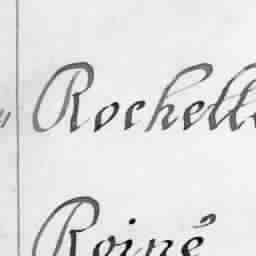 Rochelle
Roiné